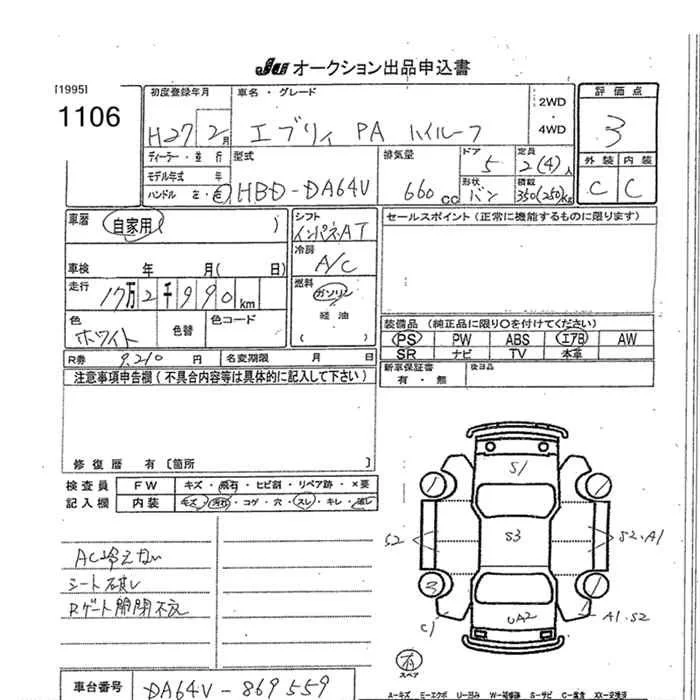 JU オークション出品申込書
[1995]
1106
初度登録年月
H27 2月
車名・グレード
エブリィ PA ハイルーフ
2WD
・
4WD
評価点
3
外装 内装
C C
ディーラー・並行
モデル年式 年
ハンドル 左・右
型式
HBD-DA64V
排気量
660cc
ドア
5
定員
2(4)人
形状
バン
積載
350(250)Kg
車歴
自家用 ( )
車検 年 月( 日)
走行
17万2千990km
色
ホワイト
色替
色コード
シフト
インパネAT
冷房
A/C
燃料
ガソリン
軽油
( )
セールスポイント(正常に機能するものに限ります)
装備品(純正品に限り○を付けてください)
PS PW ABS エアB AW
SR ナビ TV 本革
新車保証書
有・無
後日品
R券 9,210円 名変期限 月 日
注意事項申告欄(不具合内容等は具体的に記入して下さい)
修復歴 有〔箇所 〕
検査員 FW キズ・飛石・ヒビ割・リペア跡・×要
記入欄 内装 キズ・汚れ・コゲ・穴・スレ・キレ・破レ
AC冷えない
シート破レ
Rゲート開閉不良
S1
S3
S2
S2・A1
3
C1
UA2
A1・S2
スペア
車台番号 DA64V-869559
A-キズ E-エクボ U-凹み W-補修跡 S-サビ C-腐食 XX-交換済